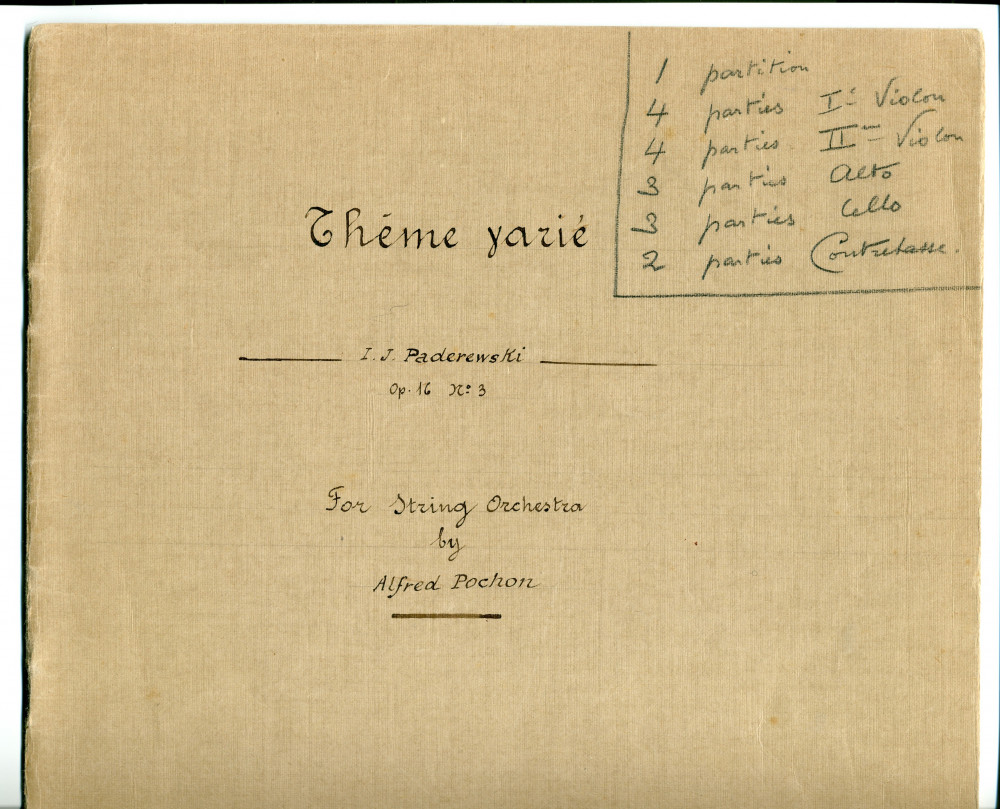 1 partition
4 parties Iᵉʳ Violon
4 parties IIᵐᵉ Violon
3 parties Alto
3 parties Cello
2 parties Contrebasse.
Thême varié
I. J. Paderewski
Op. 16 Nº 3
For String Orchestra
by
Alfred Pochon